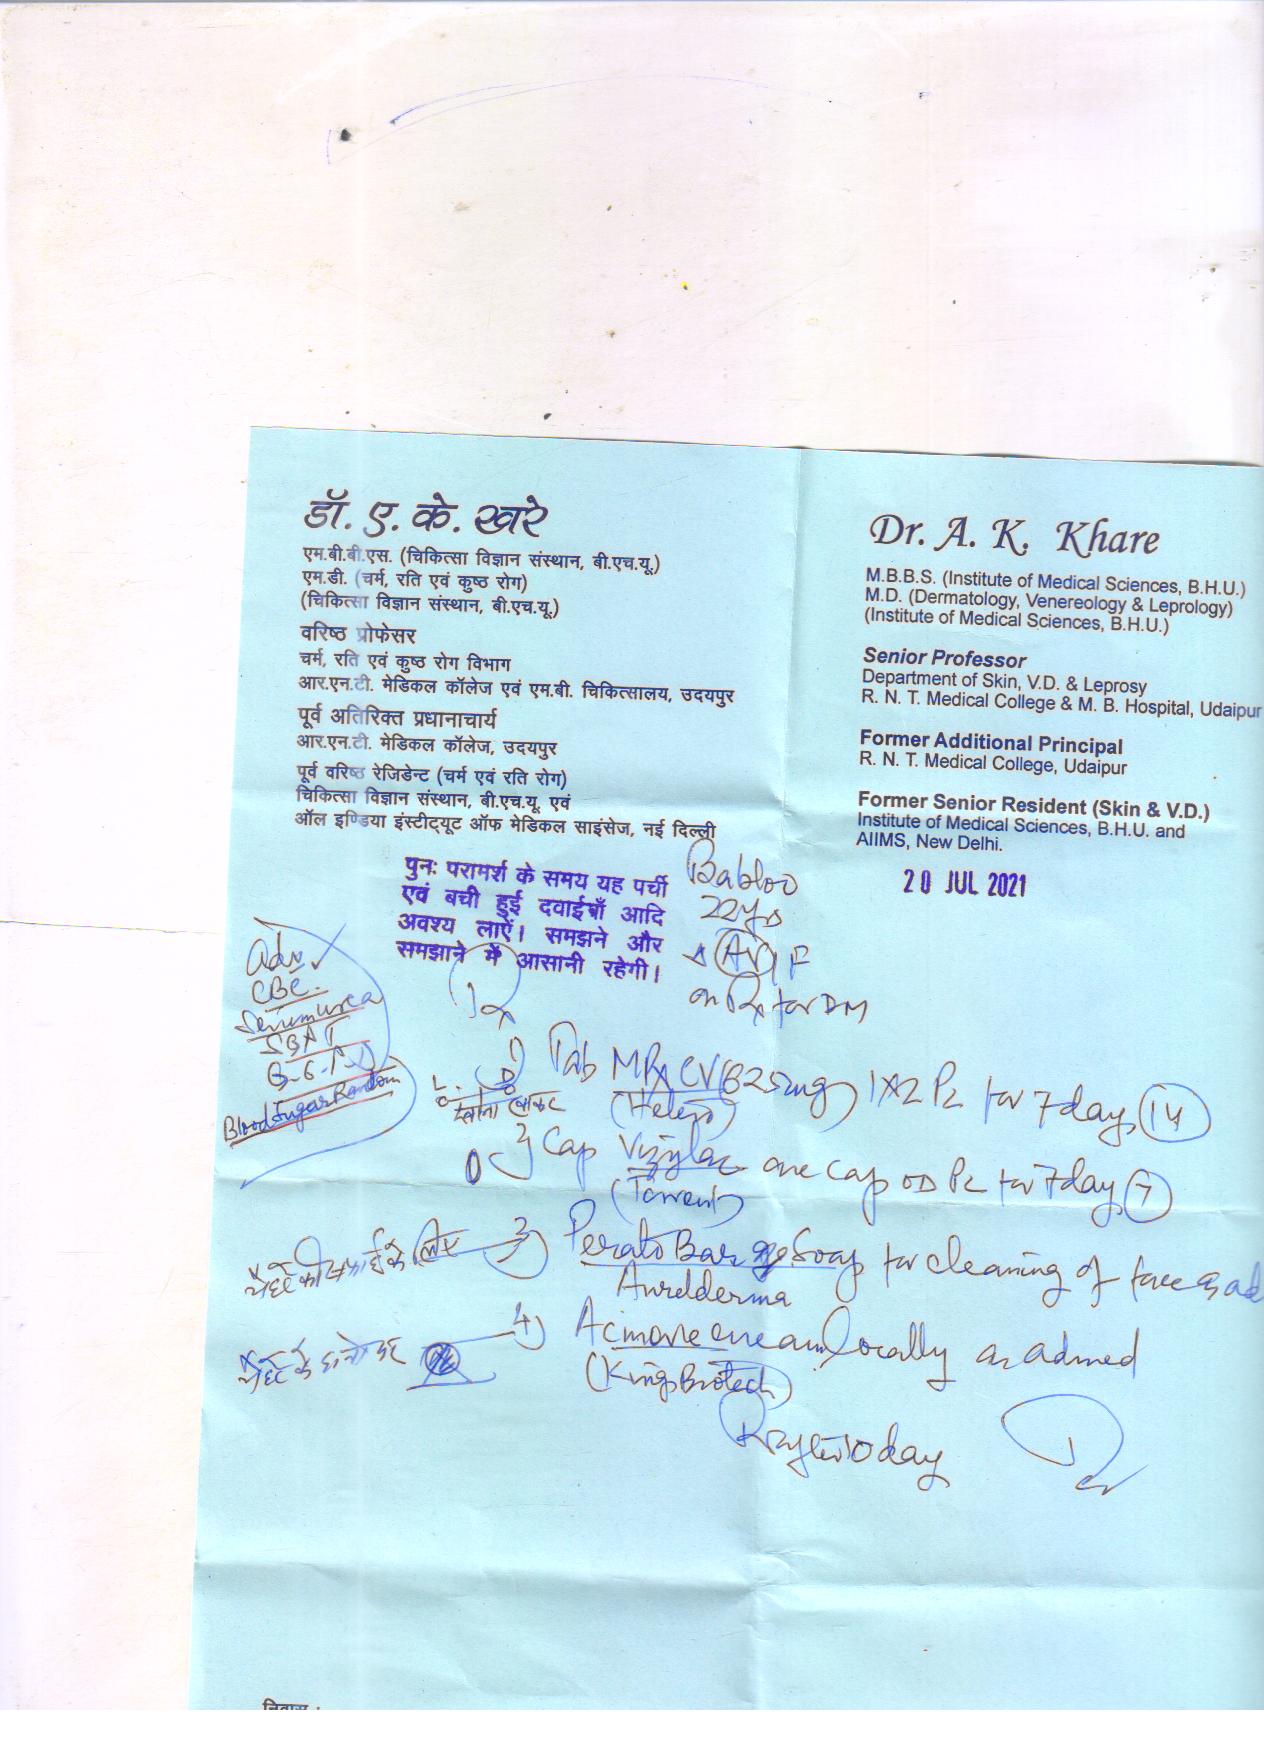 डॉ. ए. के. खरे
एम.बी.बी.एस. (चिकित्सा विज्ञान संस्थान, बी.एच.यू.)
एम.डी. (चर्म, रति एवं कुष्ठ रोग)
(चिकित्सा विज्ञान संस्थान, बी.एच.यू.)
वरिष्ठ प्रोफेसर
चर्म, रति एवं कुष्ठ रोग विभाग
आर.एन.टी. मेडिकल कॉलेज एवं एम.बी. चिकित्सालय, उदयपुर
पूर्व अतिरिक्त प्रधानाचार्य
आर.एन.टी. मेडिकल कॉलेज, उदयपुर
पूर्व वरिष्ठ रेजिडेन्ट (चर्म एवं रति रोग)
चिकित्सा विज्ञान संस्थान, बी.एच.यू. एवं
ऑल इण्डिया इंस्टीट्यूट ऑफ मेडिकल साइंसेज, नई दिल्ली
Dr. A. K. Khare
M.B.B.S. (Institute of Medical Sciences, B.H.U.)
M.D. (Dermatology, Venereology & Leprology)
(Institute of Medical Sciences, B.H.U.)
Senior Professor
Department of Skin, V.D. & Leprosy
R. N. T. Medical College & M. B. Hospital, Udaipur
Former Additional Principal
R. N. T. Medical College, Udaipur
Former Senior Resident (Skin & V.D.)
Institute of Medical Sciences, B.H.U. and
AIIMS, New Delhi.
20 JUL 2021
पुनः परामर्श के समय यह पर्ची
एवं बची हुई दवाईयाँ आदि
अवश्य लाऐं। समझने और
समझाने में आसानी रहेगी।
Babloo
22yrs
(AV) F
on Rx for DM
Adv
CBC.
Serum urea
Blood Sugar Random
Rx
1) Tab (625mg) 1X2 Pc for 7 days (14)
खाना खाकर
2) Cap one cap OD Pc for 7 days (7)
(Torrent)
चेहरे की सफाई के लिए 3) Perato Bar Soap for cleaning of face as
4) cream locally as
(Kings Biotech)
निवास :